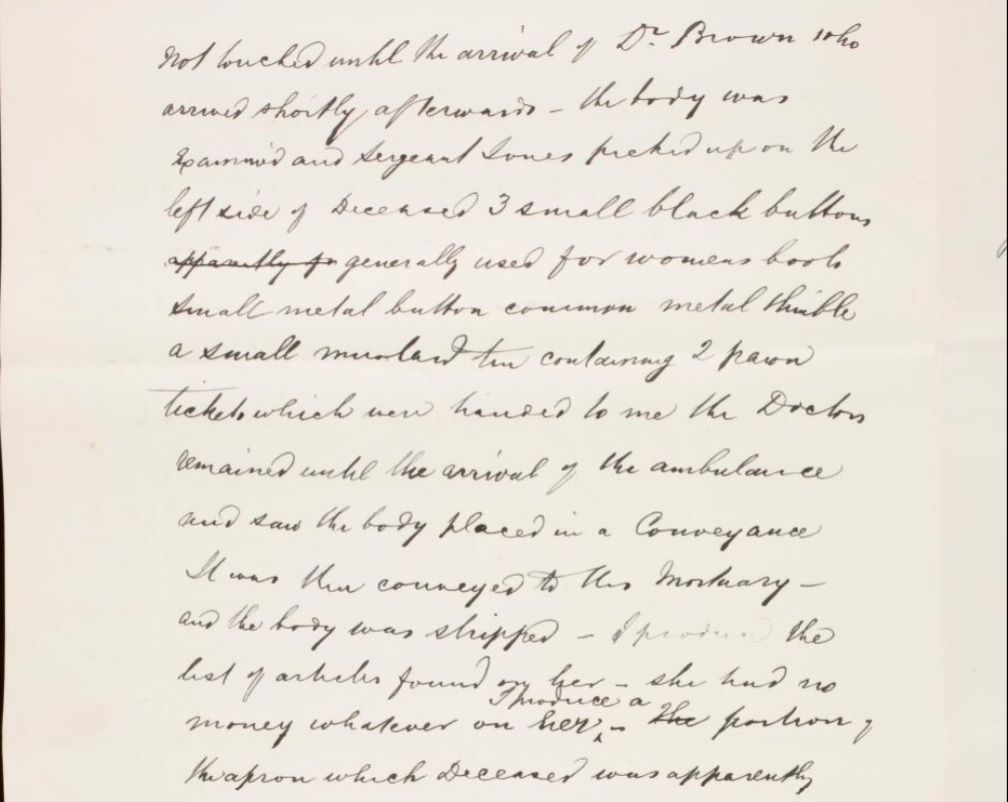 not touched until the arrival of Dr. Brown who
arrived shortly afterwards - the body was
Examined and Sergeant Jones picked up on the
left side of Deceased 3 small black buttons
apparently generally used for womens boots
small metal button common metal thimble
a small mustard tin containing 2 pawn
tickets which were handed to me the Doctors
remained until the arrival of the ambulance
and saw the body placed in a Conveyance
It was then conveyed to this Mortuary -
and the body was stripped - I produced the
list of articles found on her - she had no
I produce a
money whatever on her - the portion of
the apron which Deceased was apparently